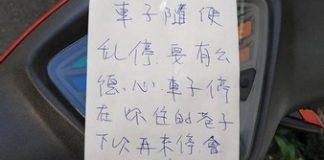 車子隨便
乱停.要有公
德.心.車子停
在妳住的巷子
下次再來停會